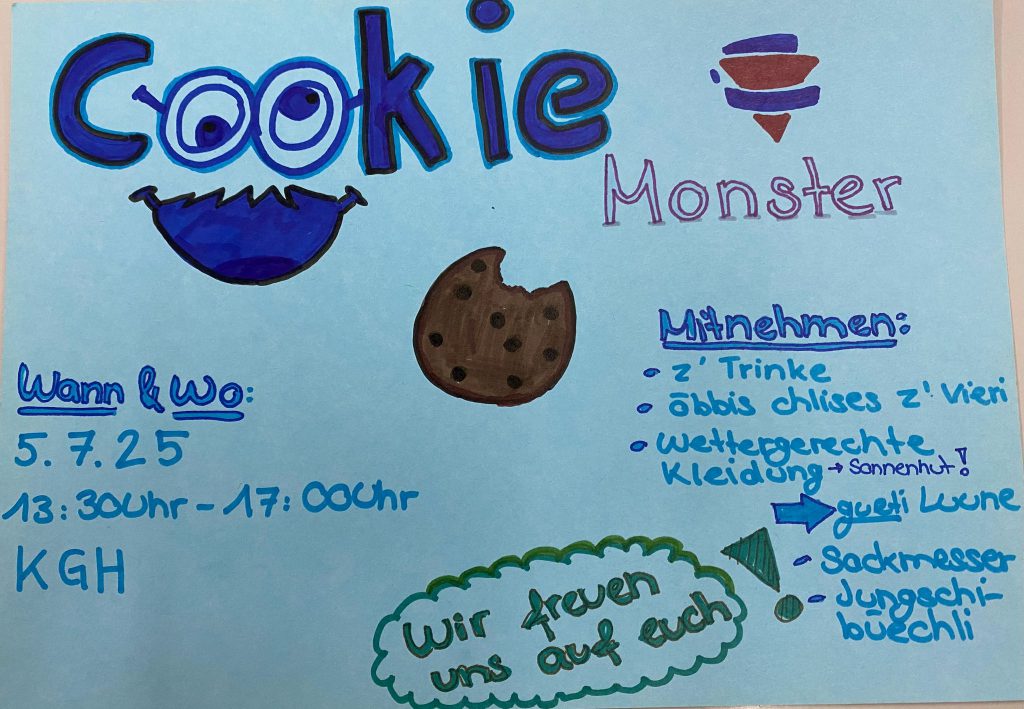 Cookie
Monster
Mitnehmen:
• z' Trinke
• öbbis chlises z' Vieri
• wettergerechte
Kleidung → Sonnenhut!
gueti Luune
• Sackmesser
• Jungschi-
büechli
Wann & Wo:
5.7.25
13:30Uhr - 17:00Uhr
KGH
Wir freuen
uns auf euch!